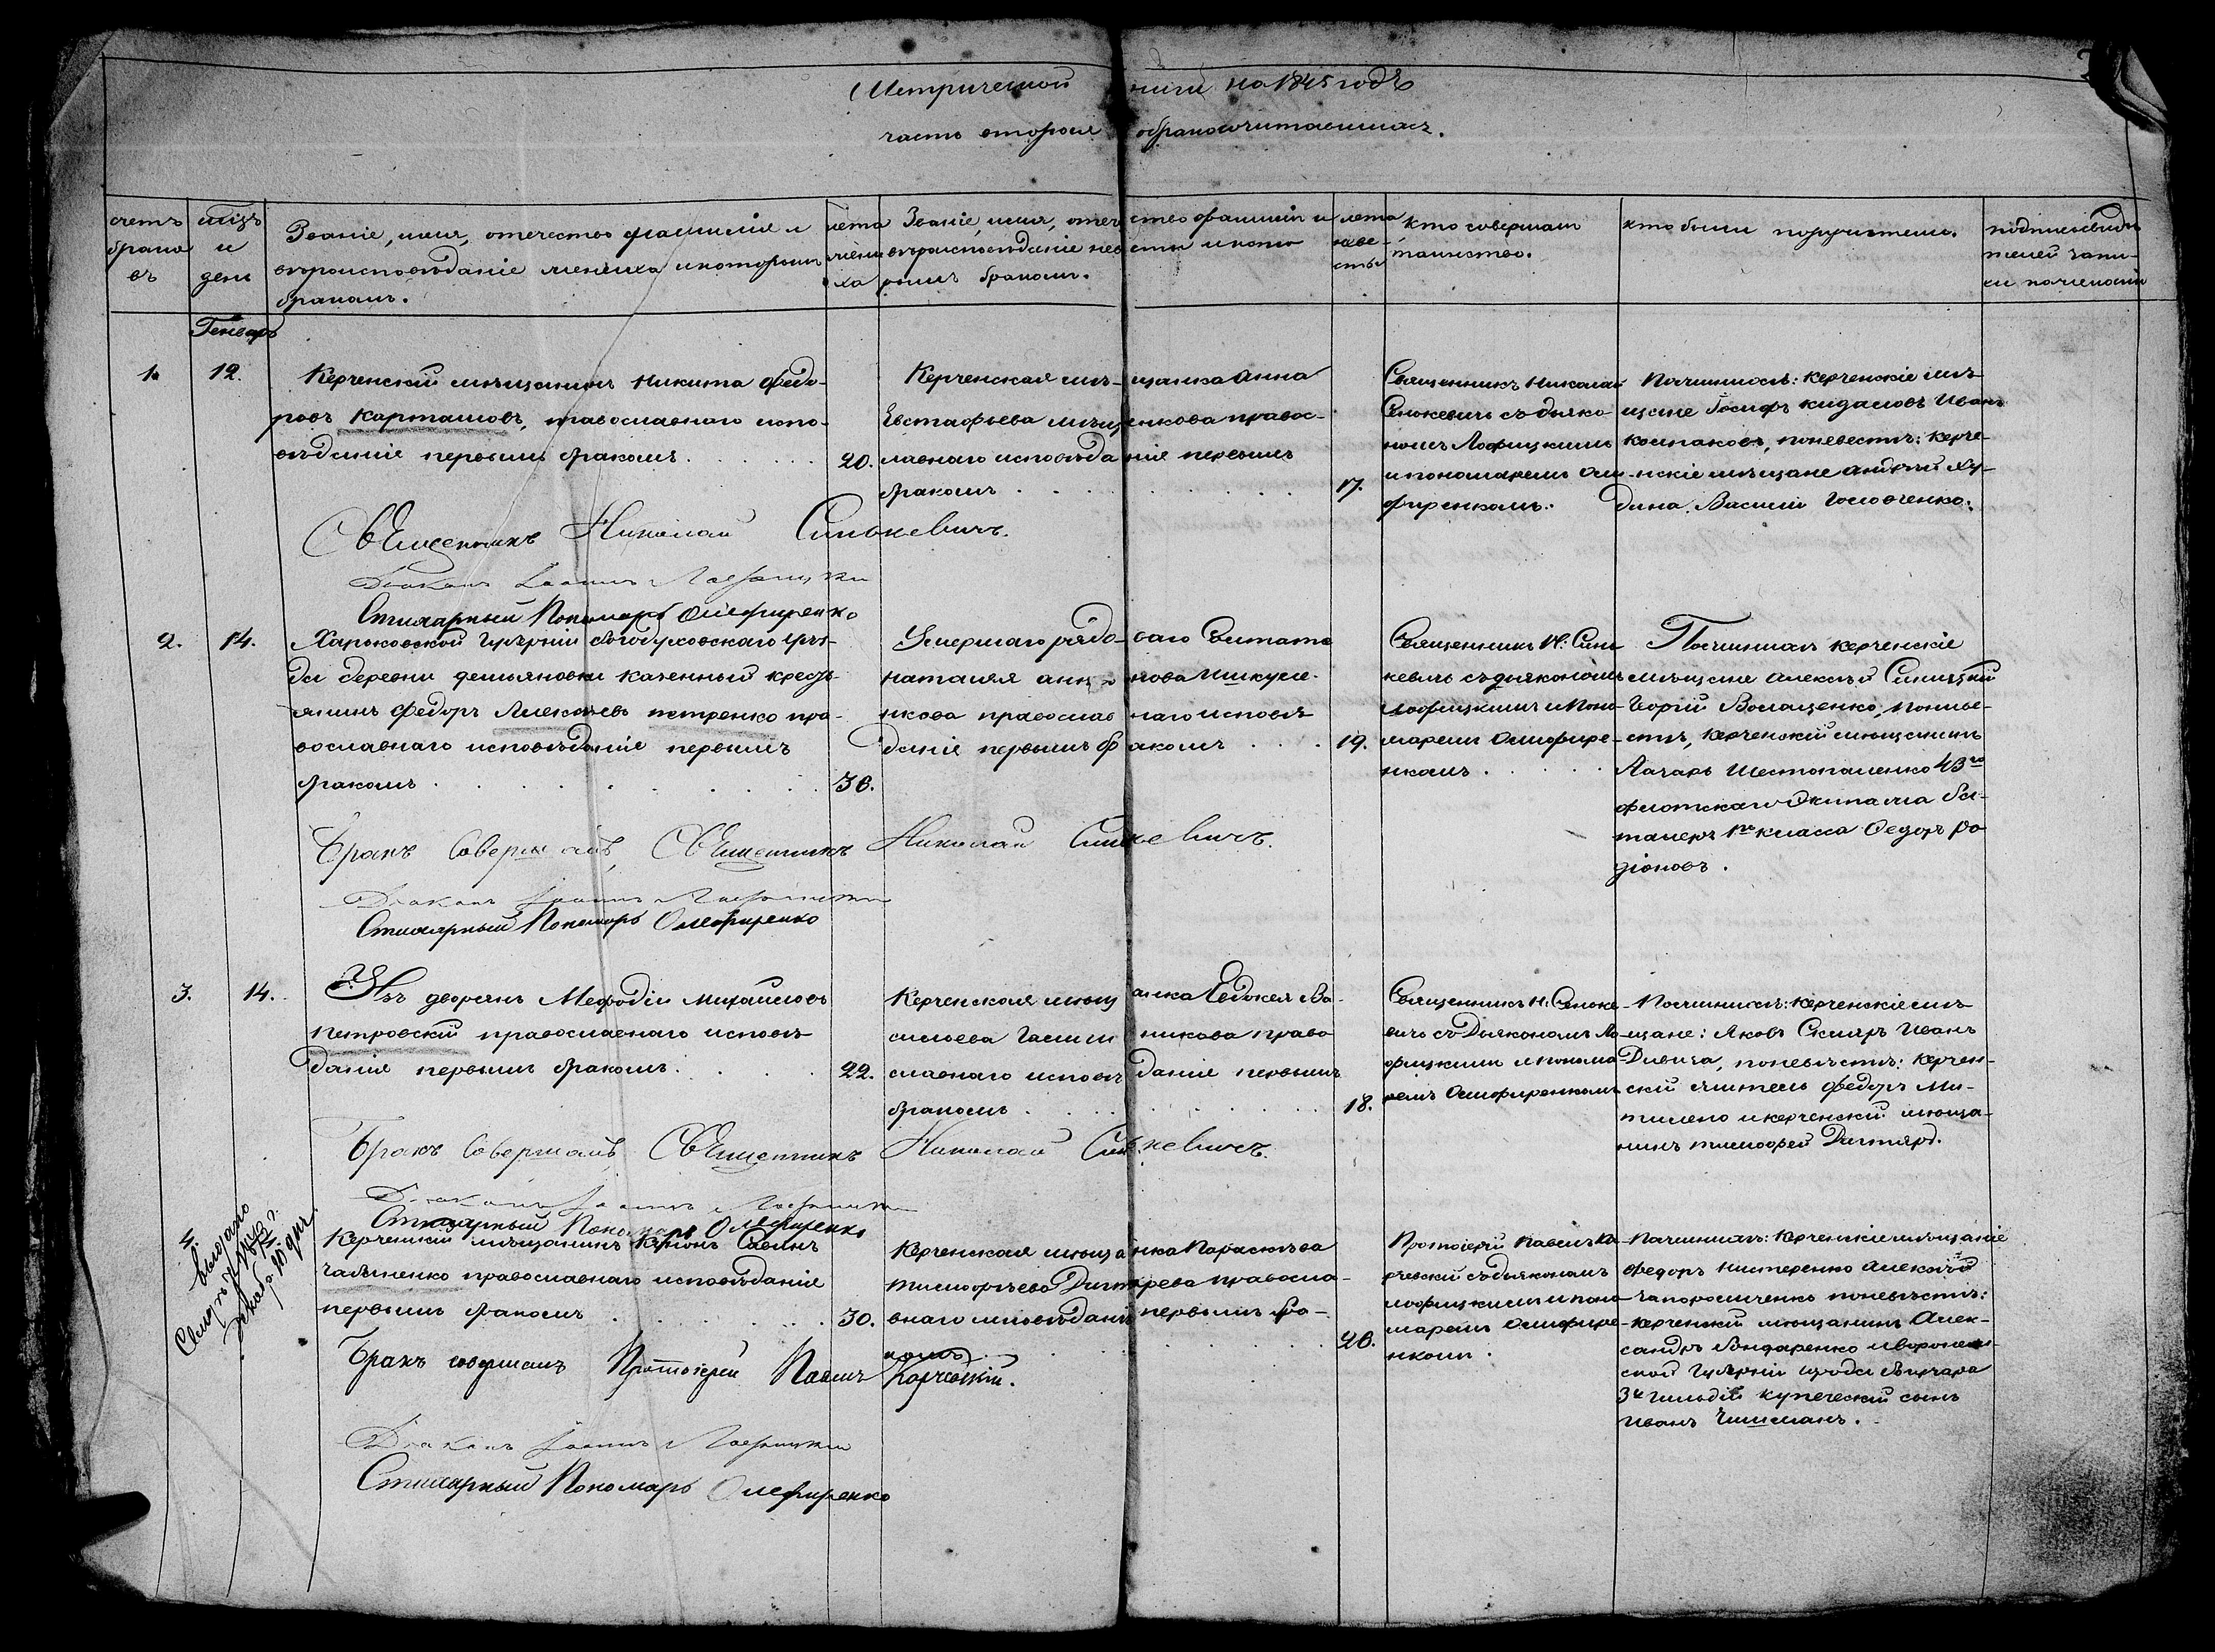 Метрической книги на 1845 годъ
часть вторая о бракосочитавшихся.
счетъ
брако
въ
мѣсяцъ
и
день
Званіе, имя, отечество фамилія и
вѣроисповѣданіе жениха и которымъ
бракомъ.
лета
жени
ха
Званіе, имя, отечество фамилія и
вѣроисповѣданіе невесты и кото
рымъ бракомъ.
лета
неве-
сты
кто совершалъ
таинство.
кто были поручители.
подпись свидѣ
телей запи-
си по желанію
Генварь
1.
12.
Керченскій мѣщанинъ Никита Федо-
ровъ Карташовъ, православнаго испо-
вѣданіе первымъ бракомъ.
20.
Керченская мѣщанка Анна
Евстафьева православнаго исповѣданіе первымъ
бракомъ
17.
Священникъ Николай
Синькевичъ съ дьяко-
номъ Лофицкимъ
и пономаремъ Оли-
фиренкомъ.
По женихѣ: керченскіе мѣ-
щане Іосифъ Кидаловъ Иванъ
Колпаковъ, по невестѣ: керче-
нскіе мѣщане Андрѣй Ху-
дина, Василій Головченко.
Священникъ Николай Синькевичъ.
Диаконъ Іоаннъ Лофицкій
Стихарный Пономарь Олефиренко
2.
14.
Харьковской Губерніи Богодуховскаго уѣз-
да деревни Демьяновки казенный кресть-
янинъ Федоръ Алексѣевъ Петренко пра-
вославнаго исповѣданіе первымъ
бракомъ
36.
Умершаго рядоваго
Наталья
православнаго исповѣ
даніе первымъ бракомъ
19.
Священникъ Н: Синь
кевичъ съ дьякономъ
Лофицкимъ и поно-
маремъ Олифире-
нкомъ.
По женихѣ керченскіе
мѣщане Алексѣй Синицкій
Георгій Волощенко, по неве-
стѣ, керченскій мѣщанинъ
Лазарь Шестопаленко 43го
флотскаго экипажа ба-
талеръ 1го класса Федоръ Ро
діоновъ.
Бракъ Совершалъ, Священникъ Николай Синькевичъ.
Диаконъ Іоаннъ Лофицкій
Стихарный Пономарь Олефиренко
3.
14.
Изъ дворянъ Мефодій Михайловъ
Петровскій православнаго исповѣ
даніе первымъ бракомъ.
22.
Керченская мѣщанка Евдокея Ва-
сильева православнаго исповѣданіе первымъ
бракомъ
18.
Священникъ Н. Синьке-
вичъ съ Дьякономъ Ло-
фицкимъ и понома-
ремъ Олифиренкомъ
По женихѣ: керченскіе мѣ-
щане: Яковъ Скляръ Иванъ
Дивиза, по невѣстѣ: керчен-
скій житель Федоръ Ми-
тилено и керченскій мѣща-
нинъ Тимофей Дигтяръ.
Бракъ Совершалъ, Священникъ Николай Синькевичъ.
Диаконъ Іоаннъ Лофицкій
Стихарный Пономарь Олефиренко
4.
выдано
Декабр. 20 дня.
Керченскій мѣщанинъ Савинъ
православнаго исповѣданіе
первымъ бракомъ
30.
Керченская мѣщанка Параскѣва
Тимофѣева Дигтярева правосла-
внаго исповѣданія первымъ бра-
комъ
20.
Протоіерей Павелъ Ка-
рчевскій съ дьякономъ
Лофицкимъ и поно-
маремъ Олифире-
нкомъ.
По женихѣ: керченскіе мѣщаніе
Федоръ Нистеренко Алексѣй
Запорожченко по невѣстѣ:
керченскій мѣщанинъ Алек-
сандръ Бондаренко и воронеж-
ской губерніи города Бирюча
3й гильдіи купеческій сынъ
Иванъ Чишманъ.
Бракъ совершалъ Протоіерей Павелъ Карчевскій.
Диаконъ Іоаннъ Лофицкій
Стихарный Пономарь Олефиренко